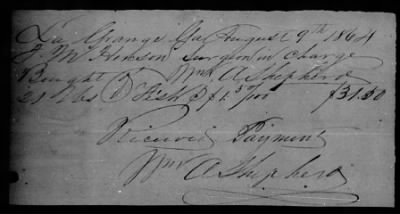 La Grange Ga August 9th 1864
Surgeon in Charge
Bought of Wm A Shepherd
21 lbs Fish @ $1.50 $31.50
Received Payment
Wm A Shepherd